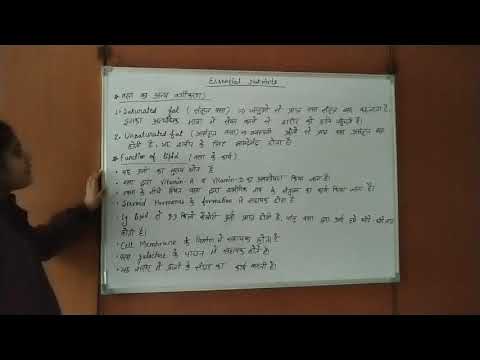 Essential nutrients
* वसा का अन्य वर्गीकरण)
1. Saturated fat ( संतृप्त वसा) => जन्तुओं से प्राप्त वसा संतृप्त वसा कहलाता है।
इसका अत्यधिक मात्रा में सेवन करने से शरीर को हानि पहुँचती है।
2. Unsaturated fat (असंतृप्त वसा) => वनस्पति स्रोतों से प्राप्त वसा असंतृप्त वसा
होती है, यह शरीर के लिए लाभदायक होता है।
* Function of lipid ( वसा के कार्य)
• यह ऊर्जा का मुख्य स्रोत है
• वसा द्वारा Vitamin-A व Vitamin-D का अवशोषण किया जाता है।
• त्वचा के नीचे स्थित वसा द्वारा शारीरिक ताप के संतुलन का कार्य किया जाता है।
• Steroid Hormones के formation में सहायक होता है
• 1g lipid से 9.3 किलो कैलोरी ऊर्जा प्राप्त होती है, परंतु वसा द्वारा ऊर्जा
होती है।
• Cell Membrane के निर्माण में सहायक होता है
• वसा galactose के पाचन में सहायक होते है।
• यह शरीर में ऊर्जा के संचय का कार्य करती है।